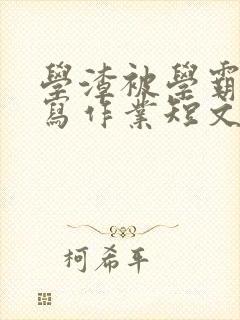 學渣被學霸
寫作業短文
柯希平